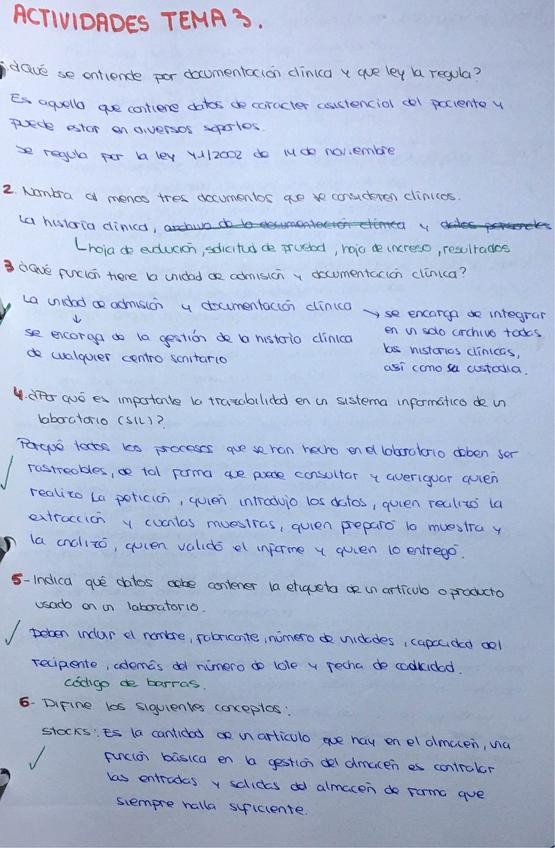 ACTIVIDADES TEMA 3.
¿Qué se entiende por documentación clínica y que ley la regula?
Es aquella que contiene datos de carácter asistencial del paciente y
puede estar en diversos soportes.
Se regula por la ley 41/2002 de 14 de noviembre
2. Nombra al menos tres documentos que se consideren clínicos.
La historia clínica, archivo de la documentación clínica y datos personales
hoja de evolución, solicitud de prueba, hoja de ingreso, resultados
3 ¿Qué función tiene la unidad de admisión y documentación clínica?
La unidad de admisión y documentación clínica → se encarga de integrar
↓ en un solo archivo todas
se encarga de la gestión de la historia clínica las historias clínicas,
de cualquier centro sanitario así como su custodia.
4. ¿Por qué es importante la trazabilidad en un sistema informático de un
laboratorio (SIL)?
Porqué todos los procesos que se han hecho en el laboratorio deben ser
rastreables, de tal forma que puede consultar y averiguar quién
realizo la petición, quién introdujo los datos, quien realizó la
extracción y cuantas muestras, quien preparó la muestra y
la analizó, quien validó el informe y quien lo entregó.
5- Indica qué datos debe contener la etiqueta de un artículo o producto
usado en un laboratorio.
Deben incluir el nombre, fabricante, número de unidades, capacidad del
recipiente, además del número de lote y fecha de caducidad.
código de barras.
6- Difine los siguientes conceptos:
Stocks: Es la cantidad de un artículo que hay en el almacén, una
función básica en la gestión del almacén es controlar
las entradas y salidas del almacén de forma que
siempre halla suficiente.